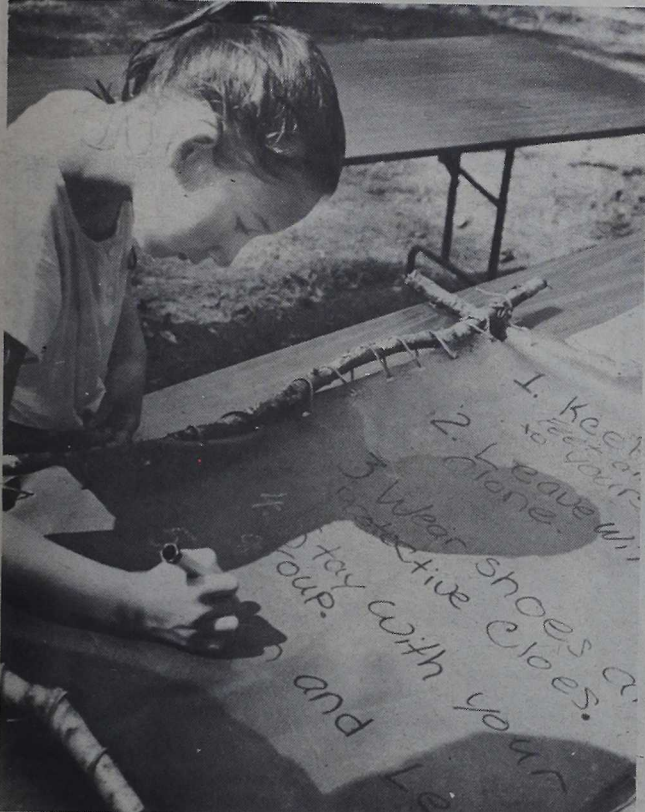 1. Keep
to your
2. Leave wil
alone.
3. Wear shoes a
protective cloes.
Stay with your
roup.
and Le